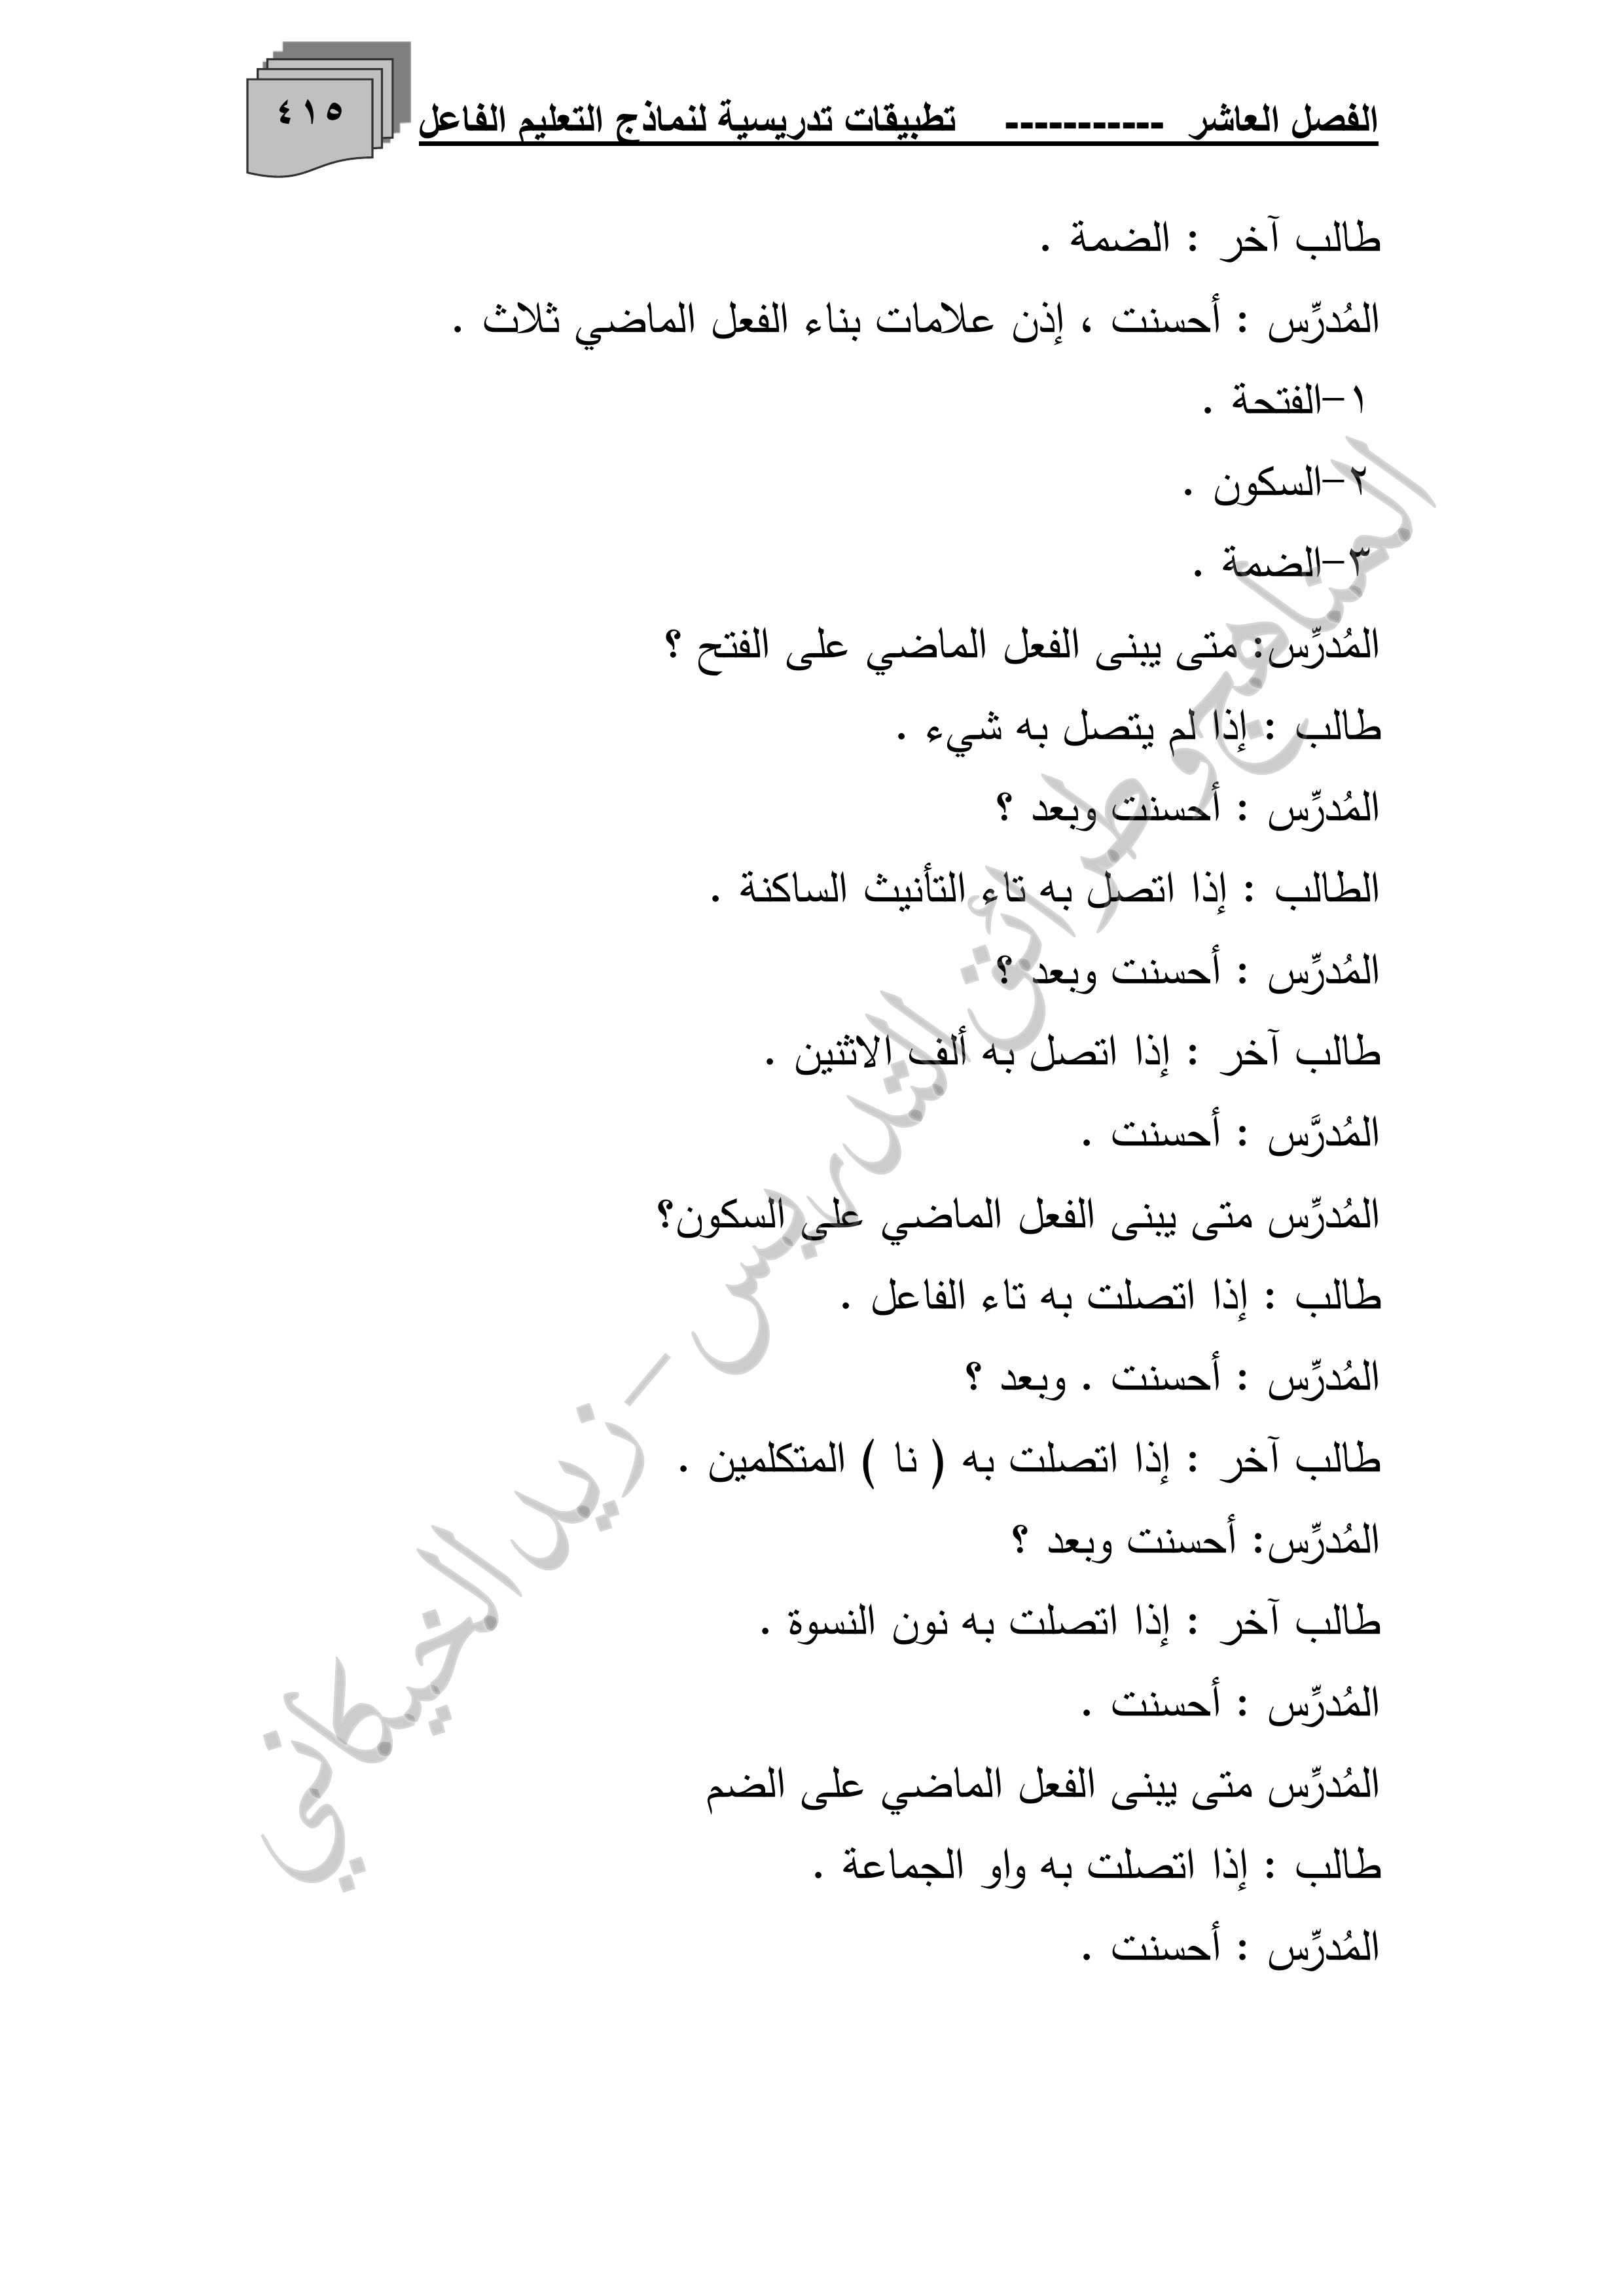 الفصل العاشر ----------- تطبيقات تدريسية لنماذج التعليم الفاعل
٤١٥
طالب آخر : الضمة .
المُدرِّس : أحسنت ، إذن علامات بناء الفعل الماضي ثلاث .
١-الفتحة .
٢-السكون .
٣-الضمة .
المُدرِّس: متى يبنى الفعل الماضي على الفتح ؟
طالب : إذا لم يتصل به شيء .
المُدرِّس : أحسنت وبعد ؟
الطالب : إذا اتصل به تاء التأنيث الساكنة .
المُدرِّس : أحسنت وبعد ؟
طالب آخر : إذا اتصل به ألف الاثنين .
المُدرَّس : أحسنت .
المُدرِّس متى يبنى الفعل الماضي على السكون؟
طالب : إذا اتصلت به تاء الفاعل .
المُدرِّس : أحسنت . وبعد ؟
طالب آخر : إذا اتصلت به ( نا ) المتكلمين .
المُدرِّس: أحسنت وبعد ؟
طالب آخر : إذا اتصلت به نون النسوة .
المُدرِّس : أحسنت .
المُدرِّس متى يبنى الفعل الماضي على الضم
طالب : إذا اتصلت به واو الجماعة .
المُدرِّس : أحسنت .
المناهج وطرائق التدريس - زيد الخيكاني